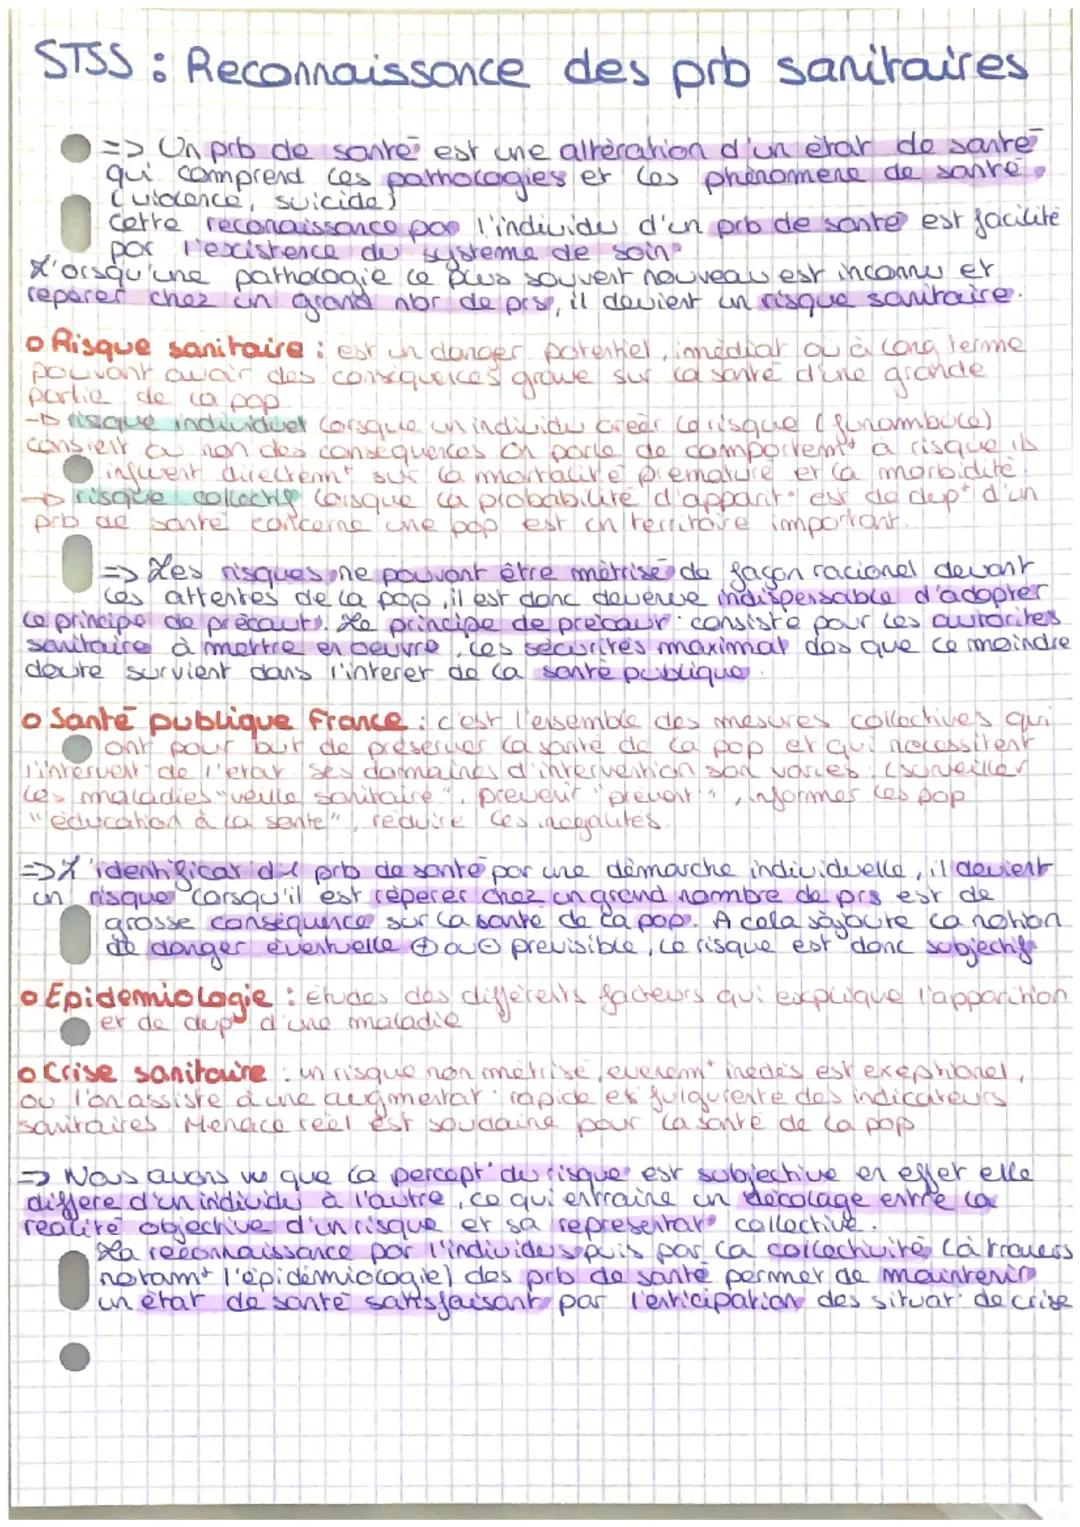 STSS : Reconnaissance des prb sanitaires
=> Un prb de santé est une altération d'un état de santé
qui comprend les pathologies et les phénomène de santé
(violence, suicide)
Cette reconaissance par l'individu d'un prb de santé est facilité
par l'existence du système de soin
L'orsqu'une pathologie le plus souvent nouveau est inconnu et
reperer chez un grand nbr de prs, il devient un risque sanitaire.
o Risque sanitaire : est un danger potentiel, imédiat ou à long terme
pouvant avoir des conséquences grave sur la santé d'une grande
partie de la pop
-> risque individuel lorsque un individu créer le risque (funambule)
consient ou non des conséquences on parle de comportemt à risque ils
influent directemt sur la mortalité prématuré et la morbidité
-> risque collectif lorsque la probabilité d'apparit° est de dupt d'un
prb de santé concerne une pop est un territoire important.
=> Les risques ne pouvant être métrisé de façon racionel devant
les attentes de la pop, il est donc devenue indispensable d'adopter
le principe de précaut°. Le principe de précaut° consiste pour les autorités
sanitaire à mettre en oeuvre les sécurités maximal dès que le moindre
doute survient dans l'interer de la santé publique
o Santé publique France : c'est l'ensemble des mesures collectives qui
ont pour but de préserver la santé de la pop et qui nécessitent
l'intervent° de l'état ses domaines d'intervention son variés (surveiller
les maladies "veille sanitaire", prévenir "prévent°", informer les pop
"éducation à la santé", réduire les inégalités.
=> L'identificat° du prb de santé par une démarche individuelle, il devient
un risque lorsqu'il est réperer chez un grand nombre de prs est de
grosse conséqunce sur la santé de la pop. A cela s'ajoute la notion
de danger éventuelle ⊕ ou ⊖ prévisible, le risque est donc subjectif
o Epidémiologie : études des différents facteurs qui explique l'apparition
et de dupt d'une maladie
o Crise sanitaire : un risque non métrisé, évenemt inédis est exeptionel,
ou l'on assiste à une augmentat° rapide et fulgurente des indicateurs
sanitaires Menace réel est soudaine pour la santé de la pop
=> Nous avons vu que la percept° du risque est subjective en effet elle
différe d'un individu à l'autre, ce qui entraine un décolage entre la
réalité objective d'un risque et sa représentat° collective.
La reconnaissance par l'individus puis par la collectivité (à travers
notamt l'épidémiologie) des prb de santé permet de maintenir
un état de santé satisfaisant par l'enticipation des situat° de crise